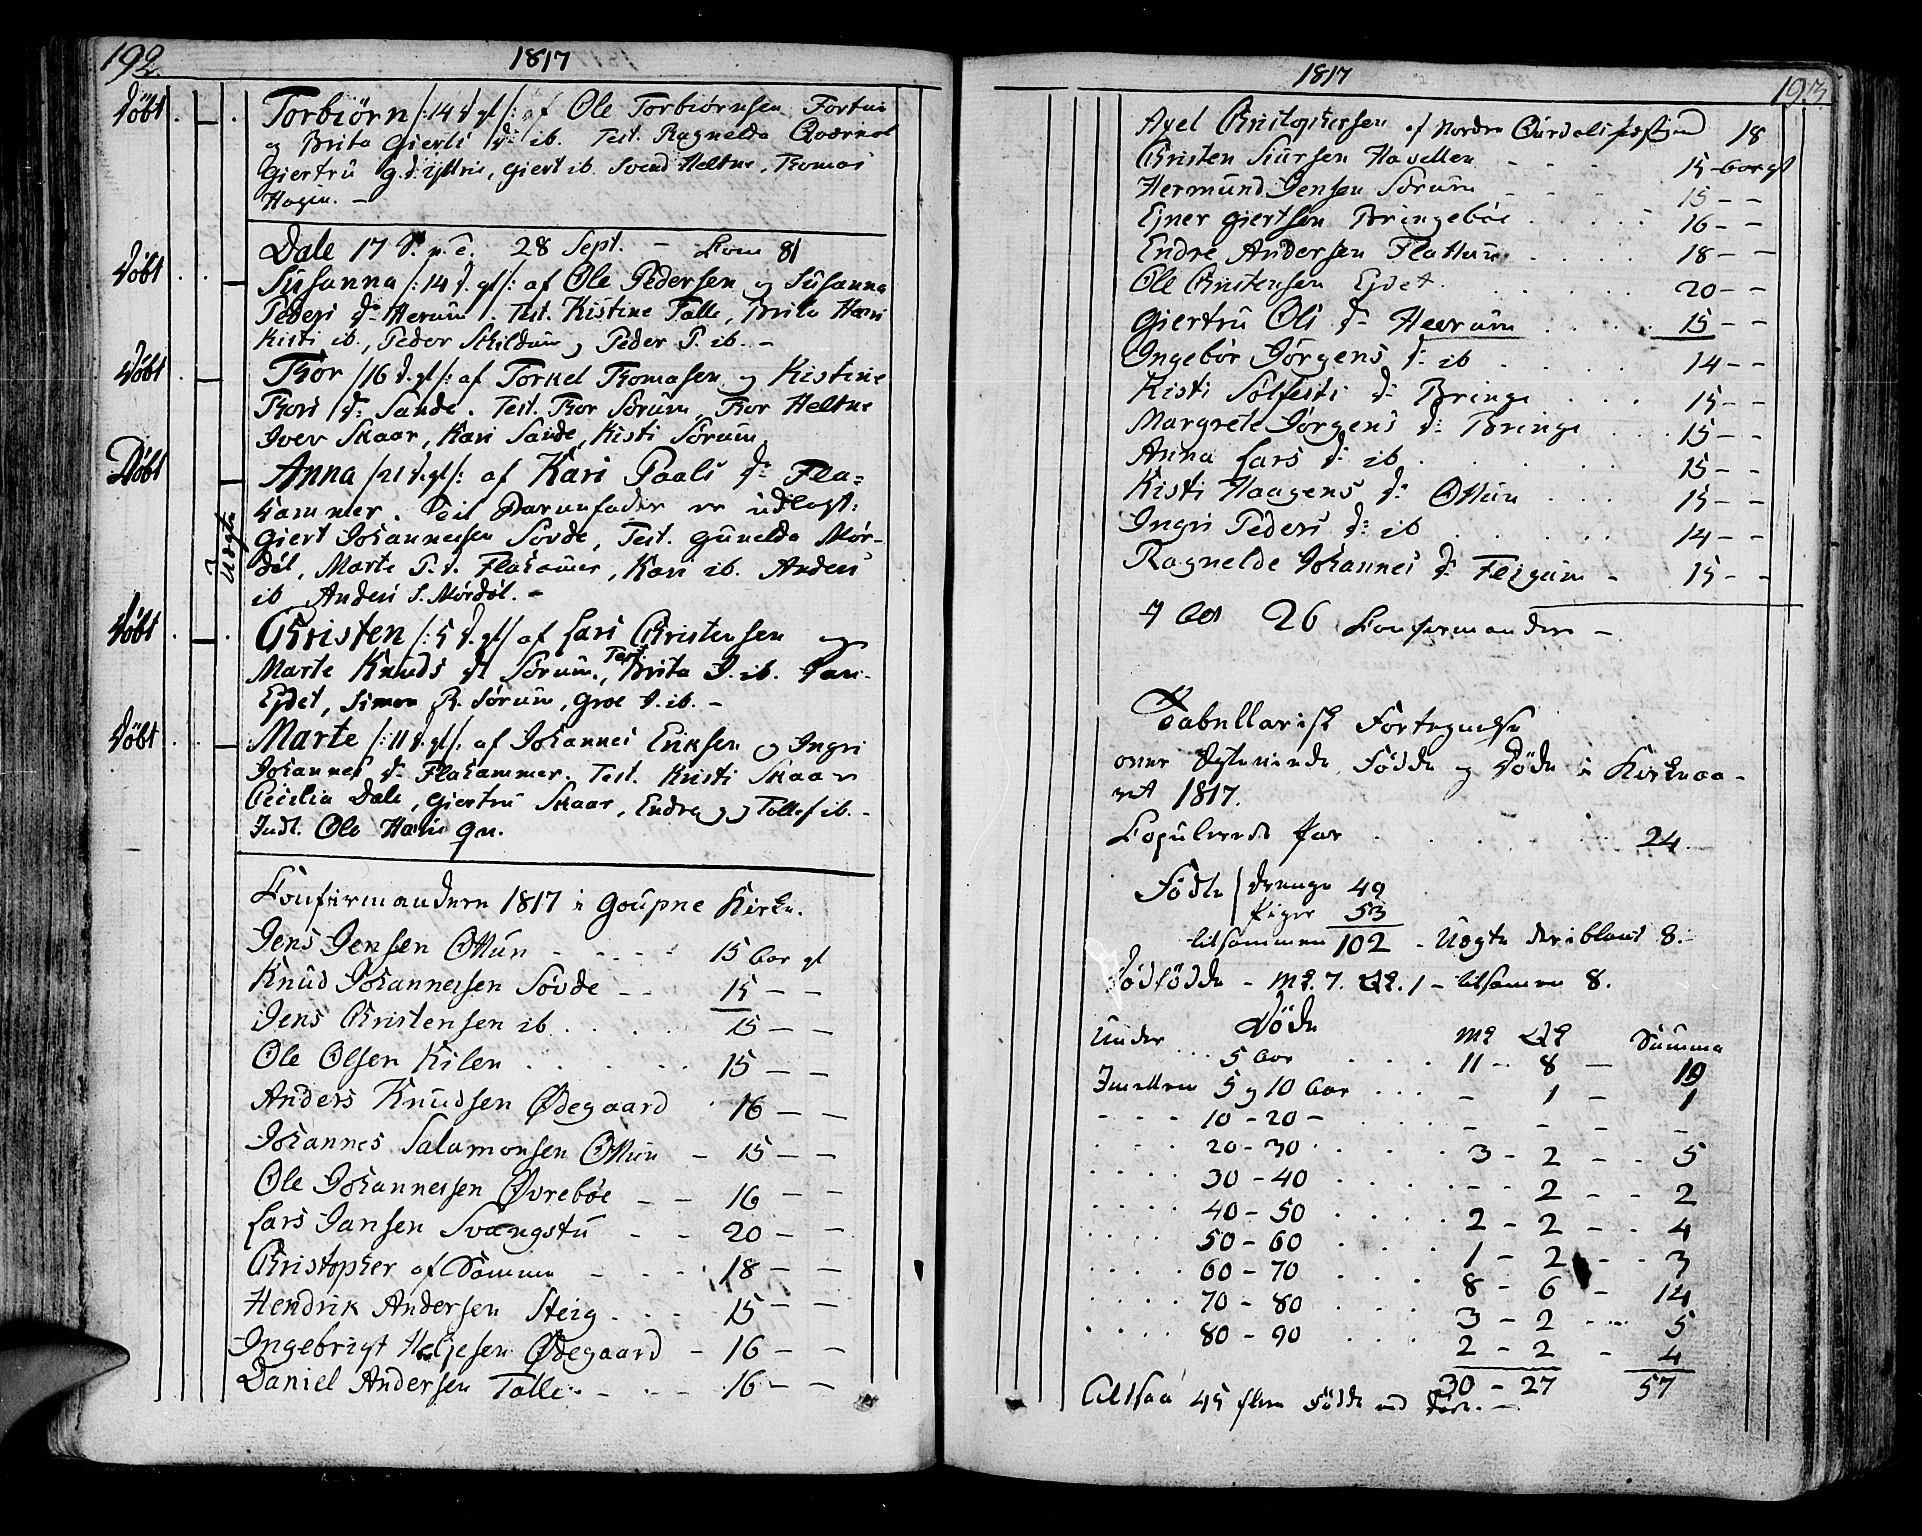 192.
1817
Döbt
Torbiörn /: 14 d. gl /: af Ole Torbiörnsen Fortun
og Brita Gierts d: ib. Test. Ragnelda Qværnot
Giertrü g. d. giert ib. Svend Heltne, Thomas
Hagen. —
Dale 17 S. n. T. 28 Sept. — Com 81
Döbt
Süsanna /: 14 d. gl /: af Ole Pedersen og Süsanna
Peders d: Herum. Test. Kistine Talle, Brita
Kisti ib., Peder Schildum og Peder P. ib. —
Döbt
Thor /16 d. gl /: af Torkel Thomasen og Kistine
Thors d: Sande. Test. Thor Sörum, Thor Heltne
Iver Skaar, Kari Sande, Kisti Sörum
Döbt
Uægte
Anna /21 d. gl /: af Kari Paals d: Fla=
hammer. Til Barnefader er udlagt:
Giert Johannessen Sövde, Test. Gunelda Mör-
död, Marte P. d. Flahamer, Kari ib. Anders
ib Anders S. Mördöl. —
Döbt
Christen /: 5 d. gl / af Lars Christensen og
Marte Knuds d: Sörum, Test. Brita I. ib. Dan.
Ejdet, Simon R. Sörum, Groe d. ib. —
Döbt
Marte /: 11 d. gl /: af Johannes Eriksen og Ingri
Johannes d: Flahammer. Test. Kristi Skaar
Cecilia Dale, Giertrü Skaar, Endre og Tollef ib. —
Intl. Ole qv.
Confirmanderne 1817 i Goupne Kirke.
Jens Jensen Ottun - - - - 15 Aar gl
Knud Johannessen Sövde - - 15 - -
Jens Christensen ib. . . . . 15 - -
Ole Olsen Kilen . . . . . . 15 - -
Anders Knudsen Ødegaard . 16 - -
Johannes Salamonsen Ottun - 15 - -
Ole Johannessen Øvrebøe - - 16 - -
Lars Jansen Svangstu - - 20 - -
Christopher af Samme - - - 18 - -
Hendrik Andersen Steig . - - 15 - -
Ingebrigt Heljesen Ødegaard - 16 - -
Daniel Andersen Talle - - - 16 - -
1817
193
Axel Christophersen af Nordre Aurdals præstegield 18
Christen Siursen Havellen - - - - 15 - Aar gl
Hermund Jensen Sörum - - - 15 - -
Ejner Giertsen Bringebøe . . . . . 16 - -
Endre Andersen Flattun . . . . 18 - -
Ole Christensen Ejdet . . . . . . 20 - -
Giertrü Ols d: Heerum . . . . 15 - -
Ingebör Jörgens d: ib . . . . . 14 - -
Kisti Solfesti d: Bringe . . . 15 - -
Margrete Jörgens d: Bringe . . . 15 - -
Anna Lars d: ib . . . . . . 15 - -
Kisti Haagens d: Ottun . . . 15 - -
Ingri Peders d: ib . . . . . . 14 - -
Ragnelde Johannes d: Flejgum - 15 - -
I alt 26 Confirmander -
Tabellarisk Fortegnelse
over Ægteviede, Födde og Döde i Kirkeaa-
ret 1817.
Copulerede Par . . . . . . . 24 -
Födte / drenge 49
piger 53
tilsammen 102 - Uægte deriblant 8. -
Dödfödde - Mk. 7. Qk. 1 - tilsamen 8.
Döde
Under 5 Aar
Mk Qk Summa
11 - 8 - 19
Imellem 5 og 10 Aar . . . - 1 - 1
- - - 10 - 20 - - - - -
20 - 30 . . . . 3 - 2 - - 5
. . . . 30 - 40 . . . . - - 2 - - 2
. . . . 40 - 50 . . . . 2 - 2 - - 4
. . . . 50 - 60 . . . 1 - 2 - - 3
. . . . 60 - 70 . . . 8 - 6 - 14
. . . . 70 - 80 . . . 3 - 2 - - 5
. . . . 80 - 90 . . . 2 - 2 - 4
30 - 27 57
Altsaa 45 flere Födde end Döde. —